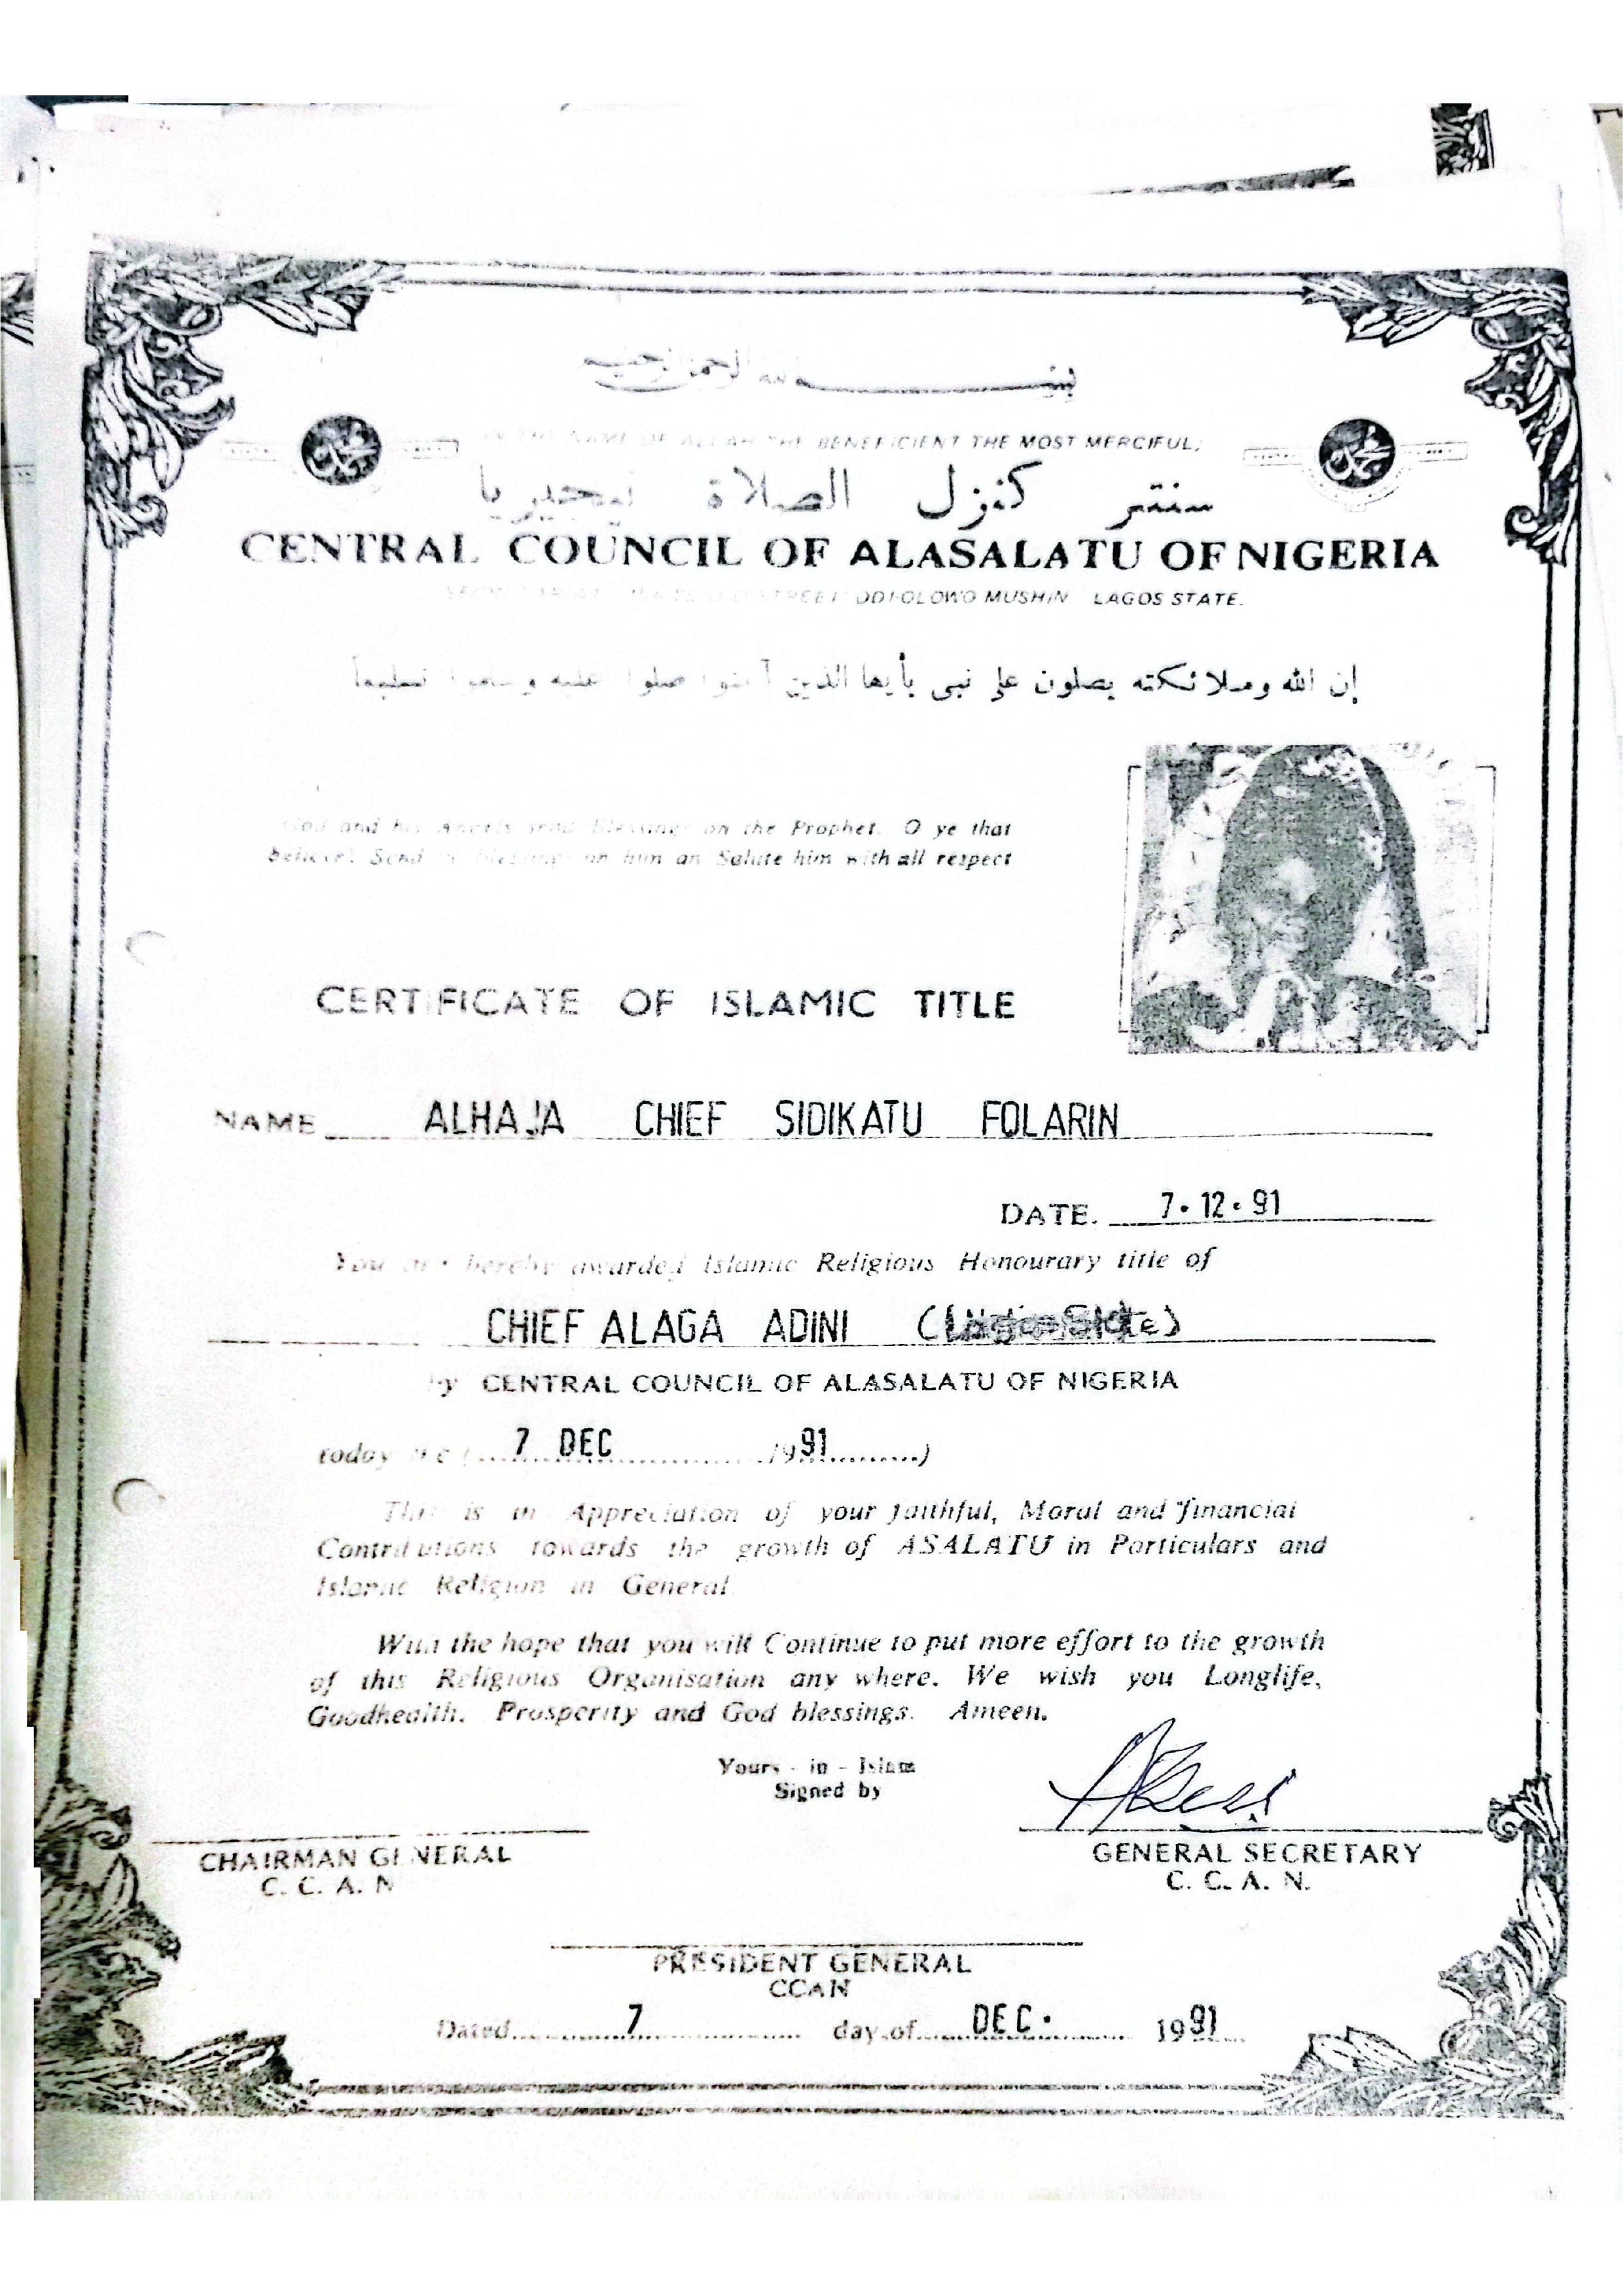 بسم الله الرحمن الرحيم
IN THE NAME OF ALLAH THE BENEFICIENT THE MOST MERCIFUL,
سنتر كنزل الصلاة نيجيريا
CENTRAL COUNCIL OF ALASALATU OF NIGERIA
STREET ODI-OLOWO MUSHIN LAGOS STATE.
إن الله وملائكته يصلون على نبى يأيها الذين آمنوا صلوا عليه وسلموا تسليما
God and his Angels send blessings on the Prophet. O ye that
believe! Send blessings on him an Salute him with all respect
CERTIFICATE OF ISLAMIC TITLE
NAME ALHAJA CHIEF SIDIKATU FOLARIN
DATE. 7.12.91
You are hereby awarded Islamic Religious Honourary title of
CHIEF ALAGA ADINI
by CENTRAL COUNCIL OF ALASALATU OF NIGERIA
today the (7 DEC 1991)
This is in Appreciation of your faithful, Moral and financial
Contributions towards the growth of ASALATU in Particulars and
Islamic Religion in General
With the hope that you will Continue to put more effort to the growth
of this Religious Organisation any where. We wish you Longlife,
Goodhealth. Prosperity and God blessings. Ameen.
Yours - in - Islam
Signed by
CHAIRMAN GENERAL
C. C. A. N
GENERAL SECRETARY
C. C. A. N.
PRESIDENT GENERAL
CCAN
Dated 7 day of DEC. 1991